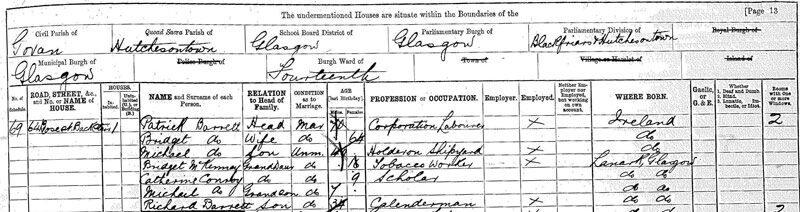 The undermentioned Houses are situate within the Boundaries of the
[Page 13
Civil Parish of
Quoad Sacra Parish of
School Board District of
Parliamentary Burgh of
Parliamentary Division of
Royal Burgh of
Govan
Hutchesontown
Glasgow
Glasgow
Blackfriars & Hutchesontown
Municipal Burgh of
Police Burgh of
Burgh Ward of
Town of
Village or Hamlet of
Island of
Glasgow
Fourteenth
No. of Schedule
ROAD, STREET, &c., and No. or NAME of HOUSE.
HOUSES.
NAME and Surname of each Person.
RELATION to Head of Family.
CONDITION as to Marriage.
AGE [last Birthday]
PROFESSION or OCCUPATION.
Employer.
Employed.
Neither Employer nor Employed, but working on own account.
WHERE BORN.
Gaelic, or G. & E.
Whether 1. Deaf and Dumb. 2. Blind. 3. Lunatic, Imbecile, or Idiot.
Rooms with One or more Windows.
69 1 Patrick Barrett Head Mar Corporation Labourer X Ireland 2
Bridget do Wife do 64 do
Michael do Son Unm. Shipyard X do
Bridget Grand Daur do 16 Tobacco Worker X Lanark Glasgow
Catherine Conroy do do 9 Scholar do do
Michael do Grandson do 7 do do
Richard Barrett Son do Calenderman X do do 2